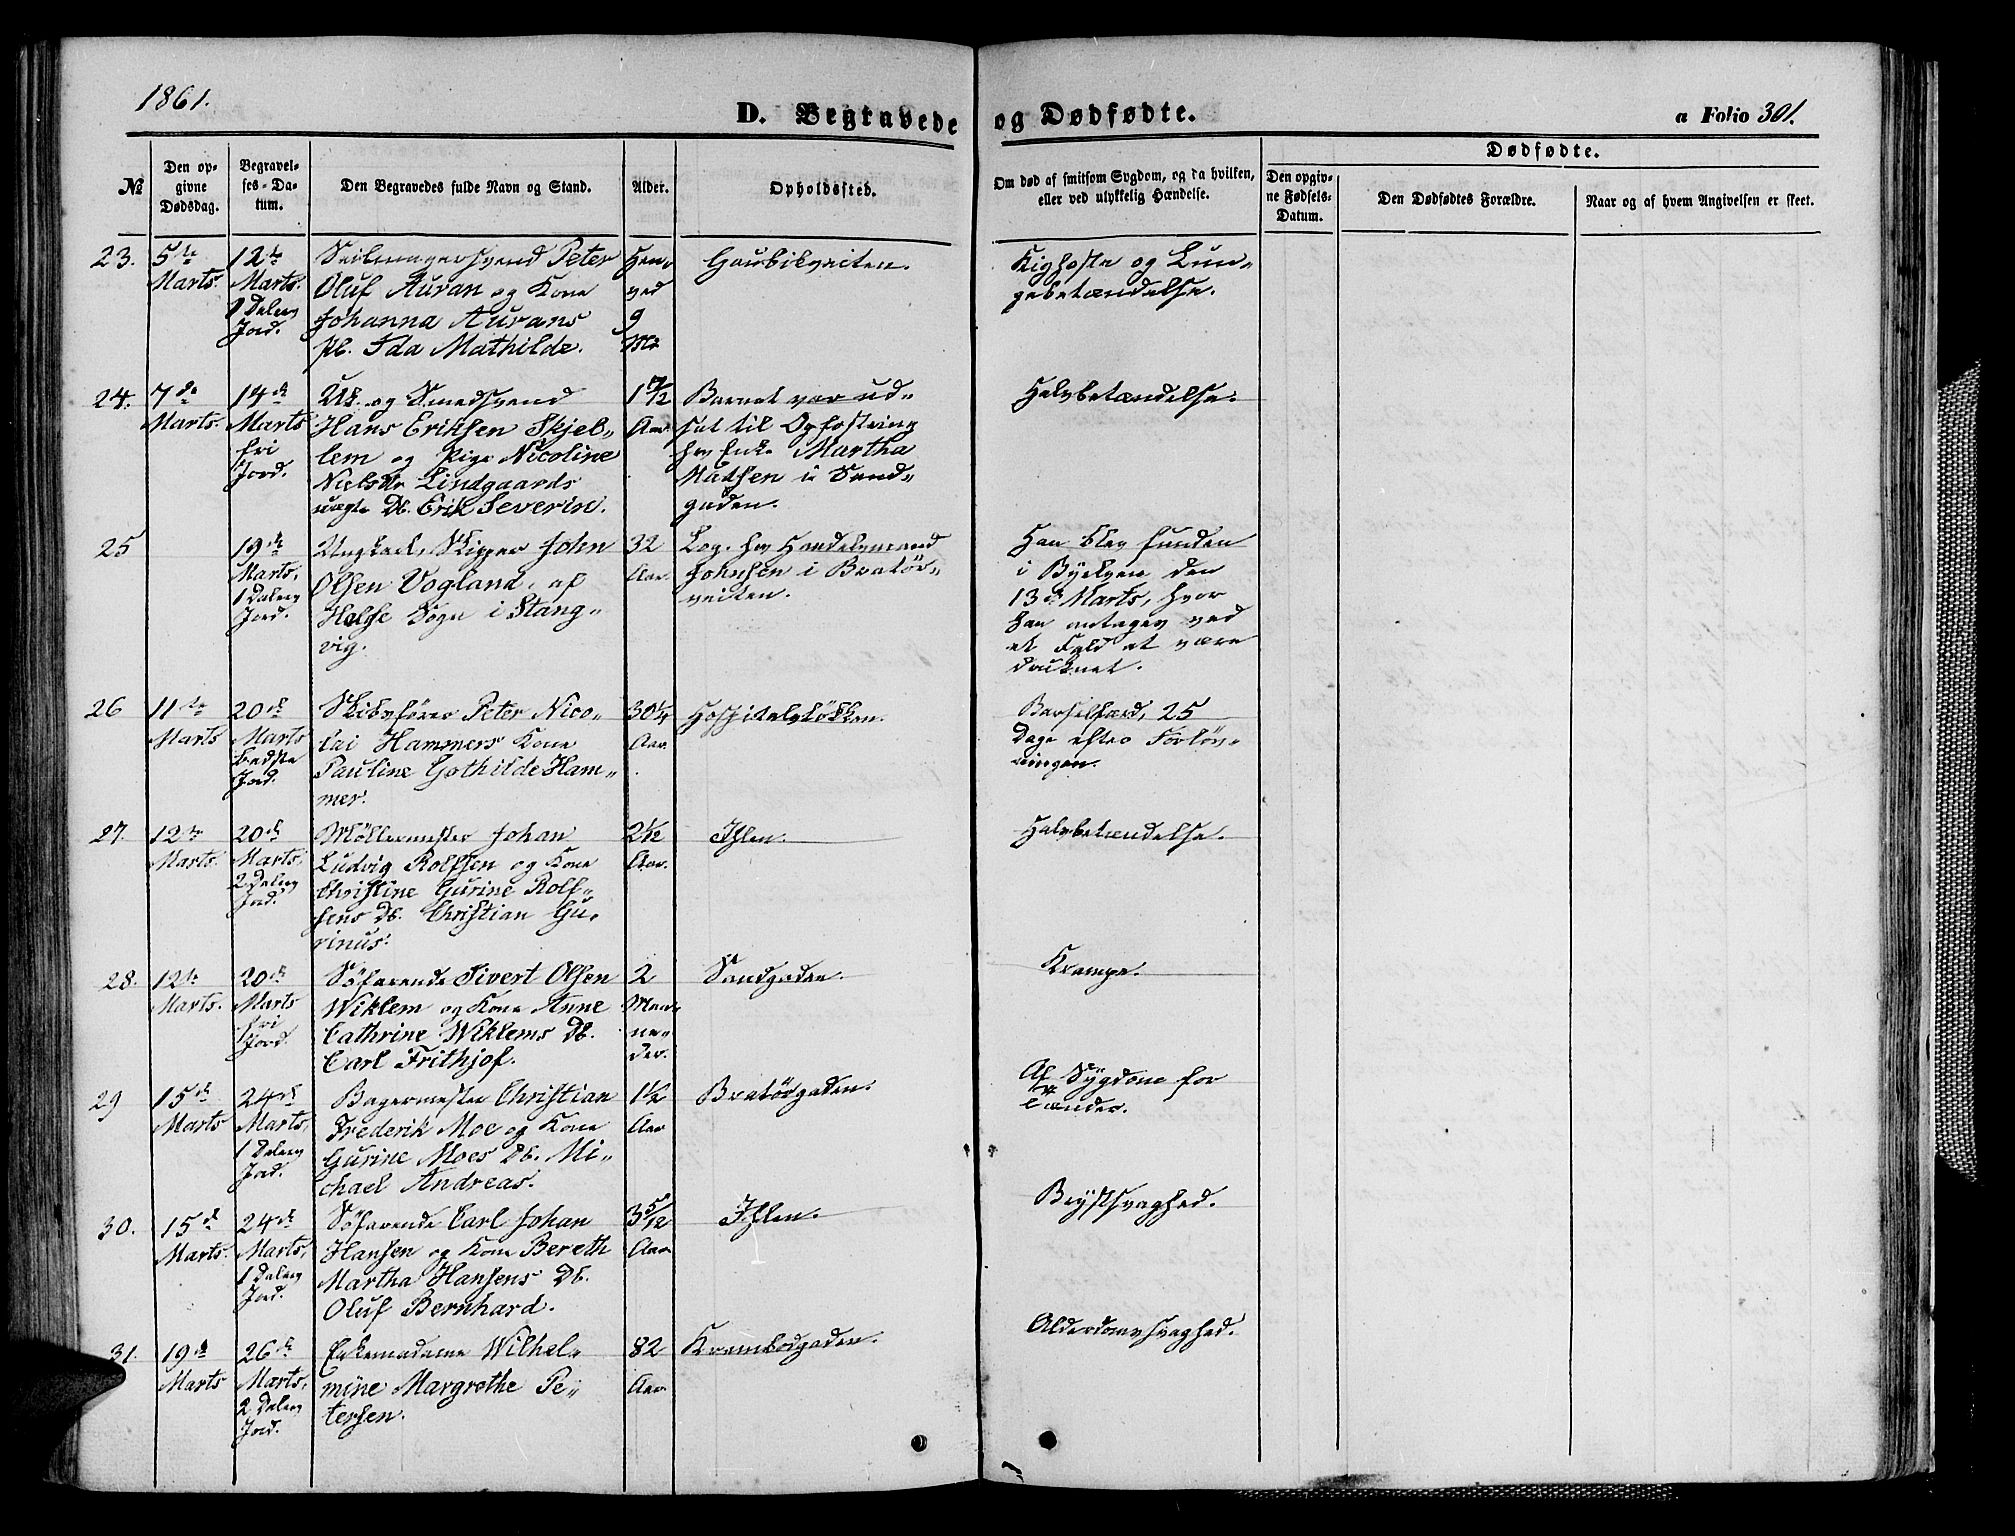 1861.
D. Begravede og Dødfødte.
a Folio 301.
№
Den opgivne Dødsdag.
Begravelses-Datum.
Den Begravedes fulde Navn og Stand.
Alder.
Opholdssted.
Om død af smitsom Sygdom, og da hvilken, eller ved ulykkelig Hændelse.
Dødfødte.
Den opgivne Fødsels-Datum.
Den Dødfødtes Forældre.
Naar og af hvem Angivelsen er skeet.
23.
5te
Marts.
12te
Marts.
1 Dalers
Jord.
Seilmagersvend Peter
Oluf Auran og Kone
Johanna Aurans
Pb. Ida Mathilde.
Hen-
ved
9
Mr
Gaubikveiten.
Kighoste og Lun-
gebetændelse.
24.
7de
Marts.
14de
Marts
fri
Jord.
Uk. og Smedsvend
Hans Eriksen Skjel-
lem og Pige Nicoline
Nielsdr Lindgaards
uægte Db. Erik Severin.
1 7/12
Aar.
Barnet var ud-
sat til Opfostring
hos Enke Martha
Madsen i Sand-
gaden.
Halsbetændelse.
25
19de
Marts,
1 Dalers
Jord.
Ungkarl, Skipper John
Olsen Vogland, af
Halse Sogn i Stang-
vig.
32
Aar.
Log. hos Handelsmand
Johnsen i Bratør-
veiten.
Han blev funden
i Byelven den
13de Marts, hvor
han antages ved
et Fald at være
druknet.
26
11te
Marts
20de
Marts
bedste
Jord.
Skibsfører Peter Nico-
lai Hammers Kone
Pauline Gothilde Ham-
mer.
30 1/4
Aar.
Hospitalsløkken.
Barselfærd, 25
Dage efter Forløs-
ningen.
27.
12te
Marts.
20de
Marts,
2 Dalers
Jord.
Møllermester Johan
Ludvig Rolfsen og Kone
Christine Gurine Rolf-
sens Db. Christian Gu-
rinus.
2 1/2
Aar.
Ihlen.
Halsbetændelse.
28.
12te
Marts.
20de
Marts
fri
Jord.
Søfarende Sivert Olsen
Wiklem og Kone Anne
Cathrine Wiklems Db.
Carl Frithjof.
2
Maa-
ne-
der.
Sandgaden.
Krampe.
29
15de
Marts
24de
Marts,
1 Dalers
Jord.
Bagermester Christian
Frederik Moe og Kone
Gurine Moes Db. Mi-
chael Andreas.
1 1/2
Aar
Bratørgaden.
Af Sygdom for
Tænder.
30.
15de
Marts.
24de
Marts,
1 Dalers
Jord.
Søfarende Carl Johan
Hansen og Kone Bereth
Martha Hansens Db.
Oluf Bernhard.
3 5/12
Aar
Ihlen.
Brystsvaghed.
31.
19de
Marts
26de
Marts,
2 Dalers
Jord.
Enkemadame Wilhel-
mine Margrethe Pe-
tersen.
82
Aar.
Krambodgaden.
Alderdomssvaghed.